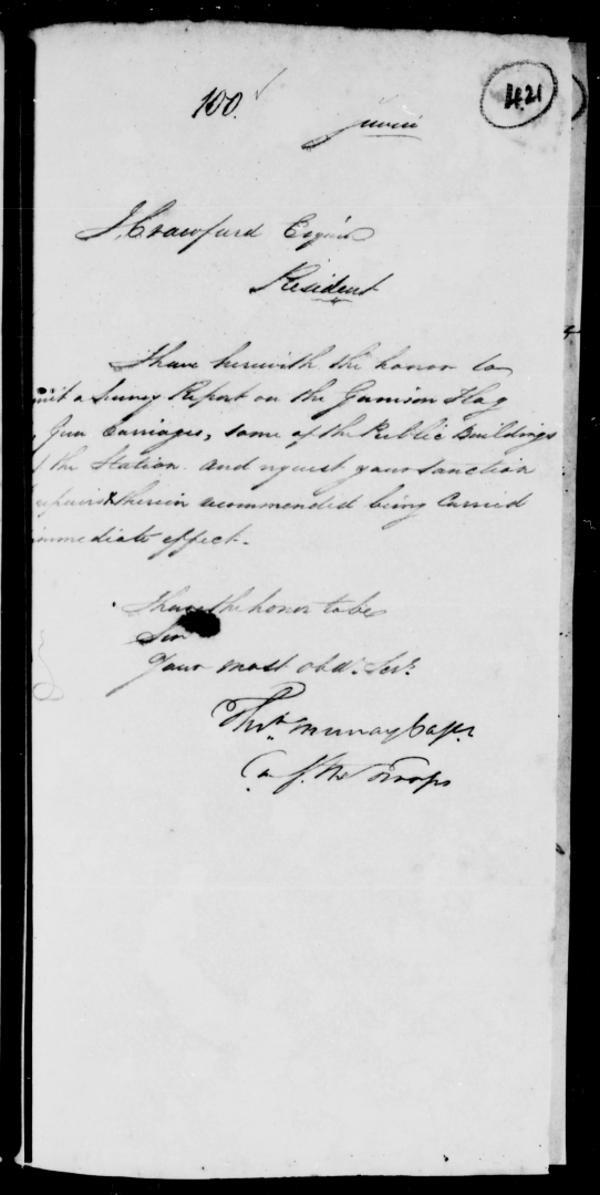 100.
421
J. Crawfurd Esquire
Resident
I have herewith the honor to
mit a Survey Report on the Garrison Flag
Gun Carriages, some of the Public Buildings
the Station. and request your sanction
repairs therein recommended being Carried
immediate effect.
I have the honor to be
Sir
Your most obdt. Servt.
Thos. Murray Capt.
Comg. the Troops